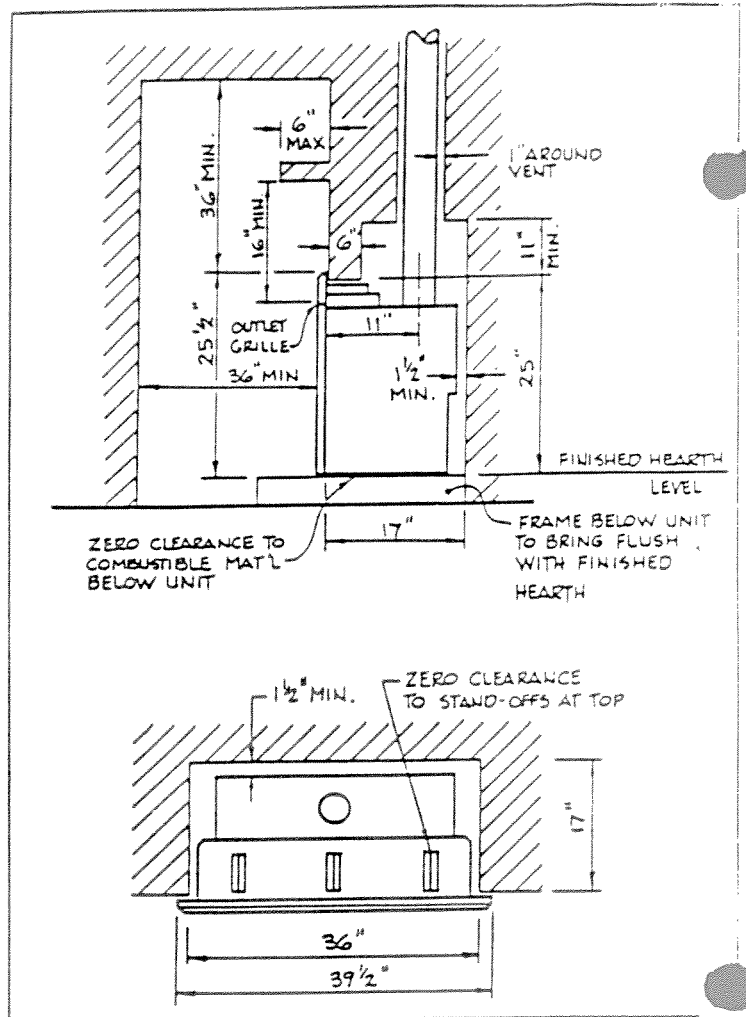 6"
MAX
36" MIN.
16" MIN
6"
1" AROUND
VENT
11"
MIN.
25 1/2"
OUTLET
GRILLE
11"
36" MIN
1 1/2"
MIN.
25"
FINISHED HEARTH
LEVEL
17"
ZERO CLEARANCE TO
COMBUSTIBLE MAT'L
BELOW UNIT
FRAME BELOW UNIT
TO BRING FLUSH
WITH FINISHED
HEARTH
1 1/2" MIN.
ZERO CLEARANCE
TO STAND-OFFS AT TOP
17"
36"
39 1/2"